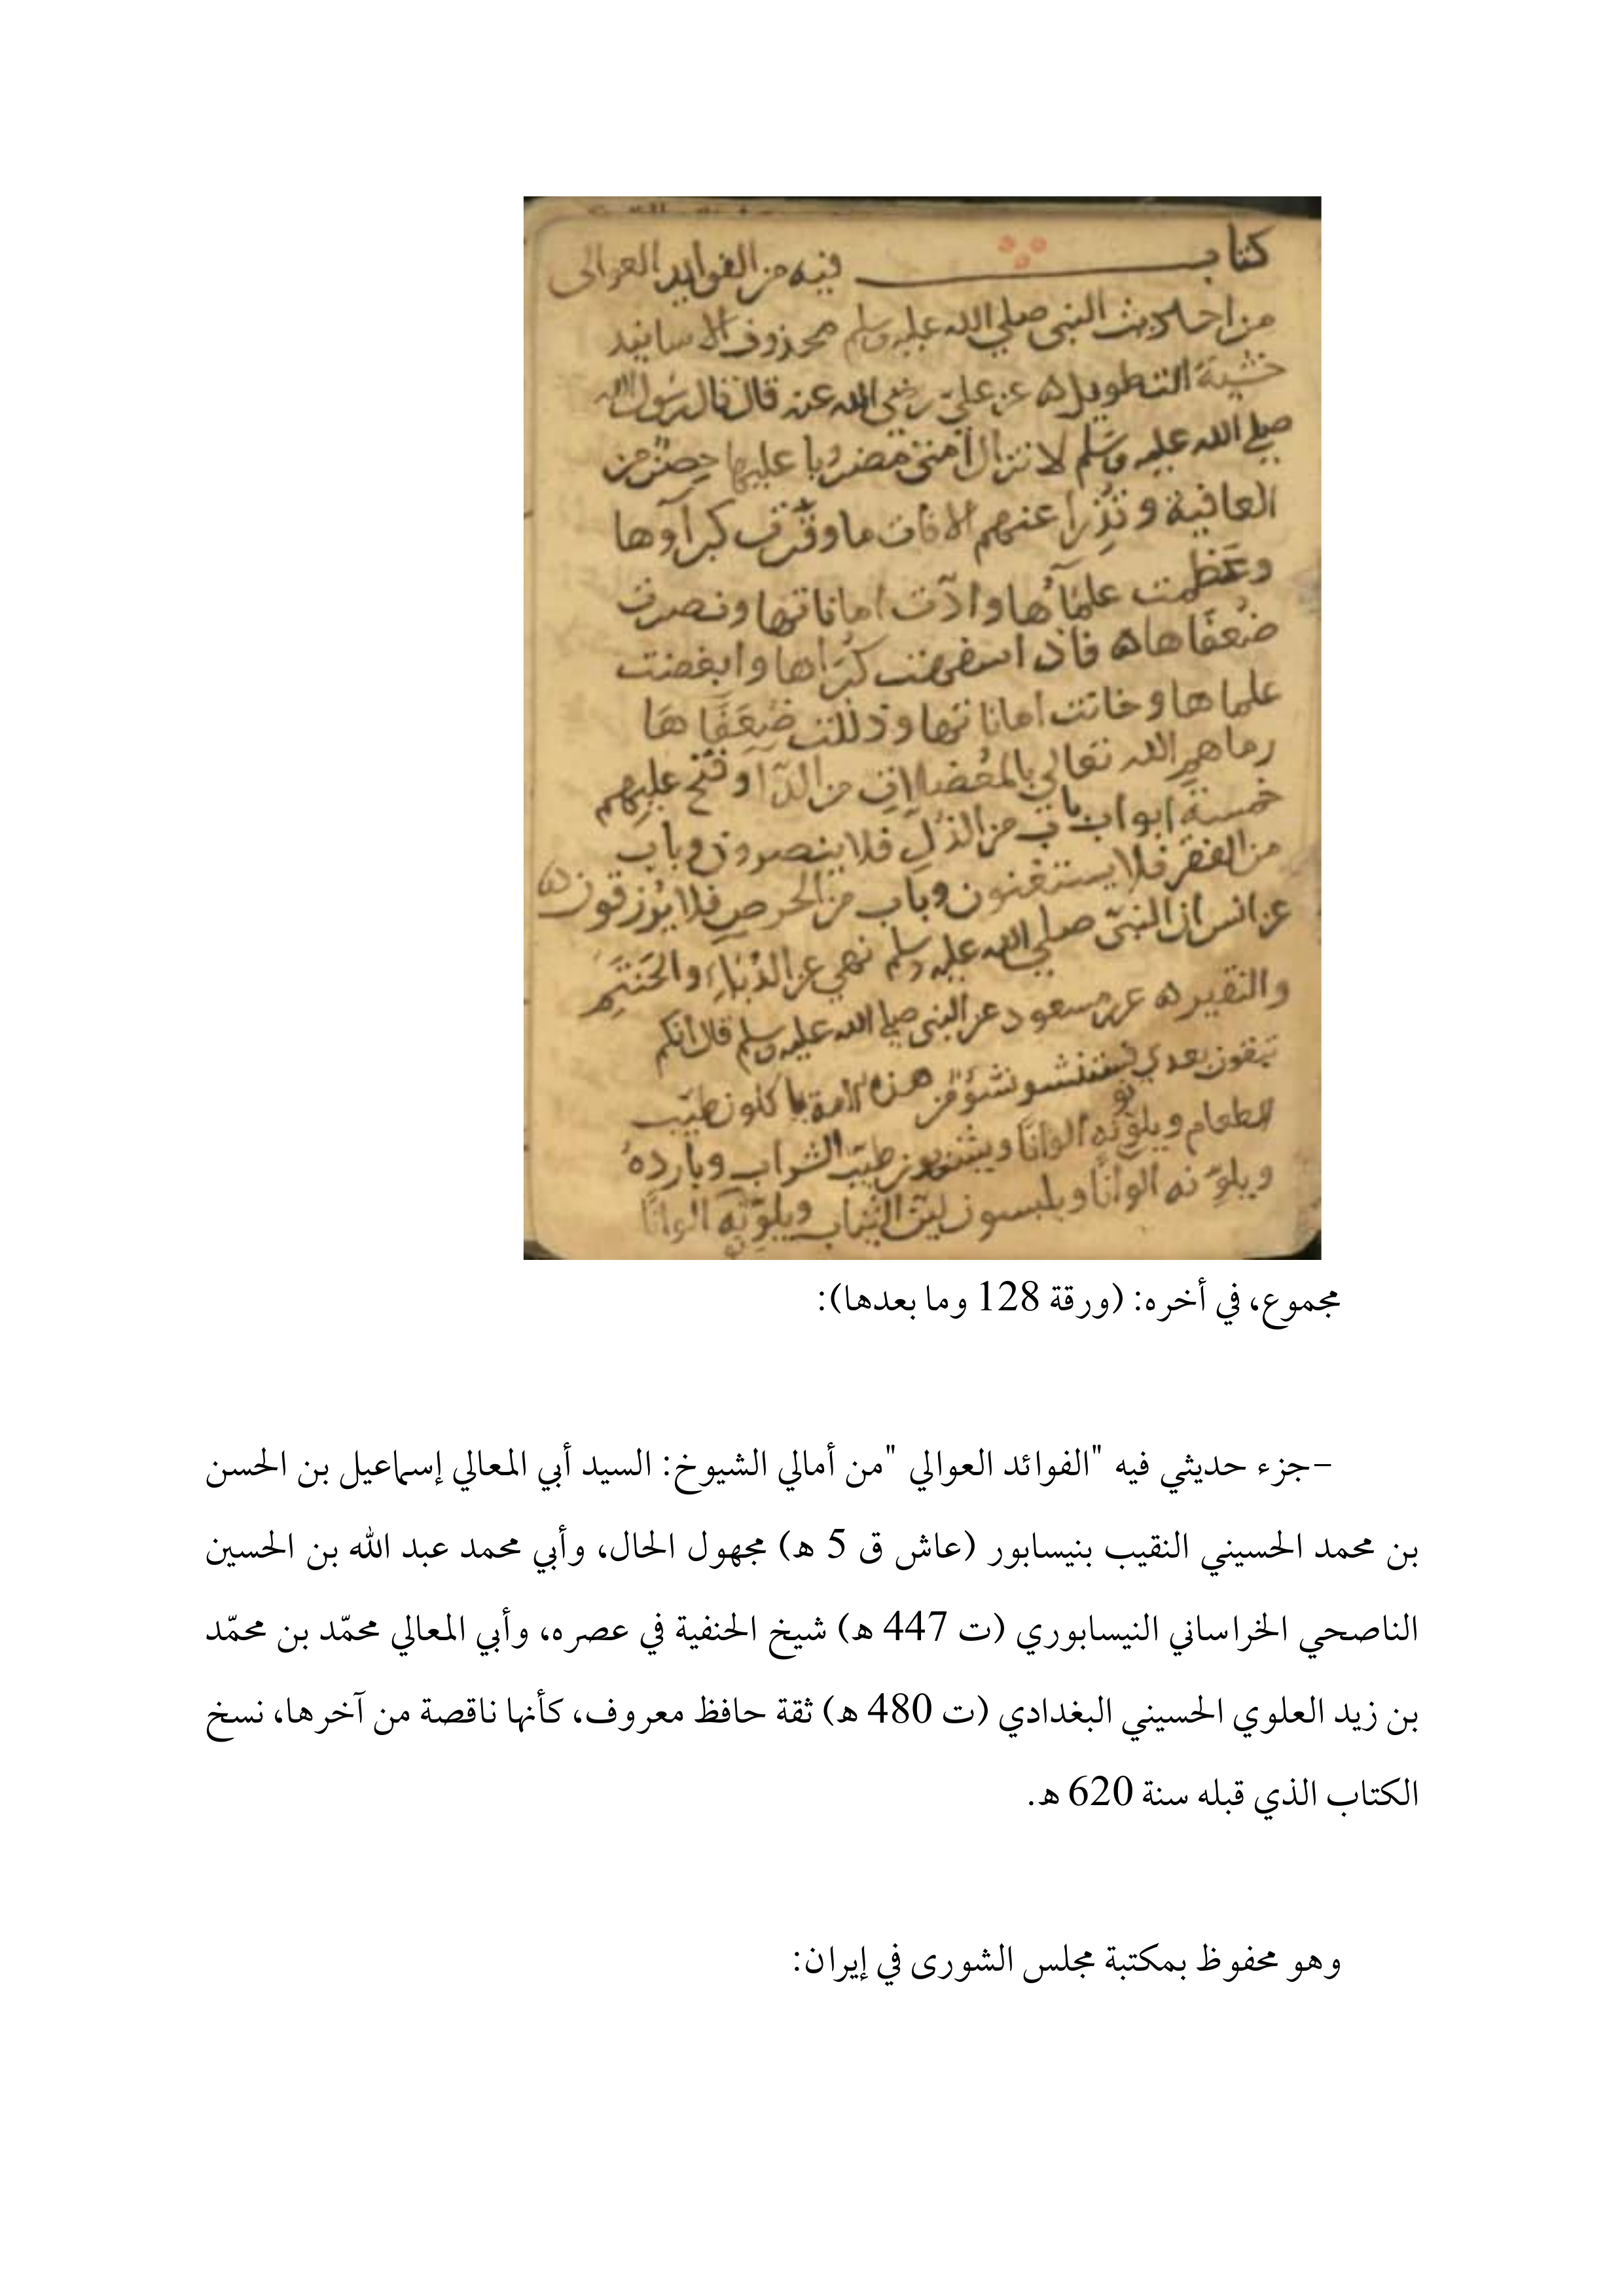 كتاب فيه من الفوايد العوالى
من احاديث النبى صلي الله عليه وسلم محذوف الاسانيد
خشية التطويل ه عن عليّ رضي الله عنه قال قال رسول الله
صلي الله عليه وسَلم لا تزال امتى مضروبا عليها حِصنٌ من
العافية وتُذِرا عنهم الافات ما وقّرت كبرآوها
وعَظمت علمآُها وادّت اماناتها ونصرت
ضُعفَاها ه فاذا كبُرَاها وابغضت
علماها وخانت اماناتها وذللت ضُعَفَاهَا
رماهم الله تعالي بالمعُضلات من الدّآ وفتح عليهم
خمسة ابواب باب من الذلِ فلا ينصرون وباب
من الفقر فلا يستغنون وباب من الحرصِ فلا يُرزقون ه
عن انس ان النبىّ صلي الله عليه وسلم نهي عن الدُّبَاءِ والحَنتَمِ
والنقير ه عن مسعود عن النبى صلي الله عليه وسلم قال انكم
تبقون بعدي نشوٌ من هذه الامة ياكلون طيّب
الطعام ويلوّنه الوانًا طيّبَ الشراب وباردهُ
ويلوّنه الوانًا ويلبسون ليّنَ الثياب ويلوّنه الوانًا
مجموع، في أخره: (ورقة 128 وما بعدها):
-جزء حديثي فيه "الفوائد العوالي "من أمالي الشيوخ: السيد أبي المعالي إسماعيل بن الحسن
بن محمد الحسيني النقيب بنيسابور (عاش ق 5 ه) مجهول الحال، وأبي محمد عبد الله بن الحسين
الناصحي الخراساني النيسابوري (ت 447 ه) شيخ الحنفية في عصره، وأبي المعالي محمّد بن محمّد
بن زيد العلوي الحسيني البغدادي (ت 480 ه) ثقة حافظ معروف، كأنها ناقصة من آخرها، نسخ
الكتاب الذي قبله سنة 620 ه.
وهو محفوظ بمكتبة مجلس الشورى في إيران: